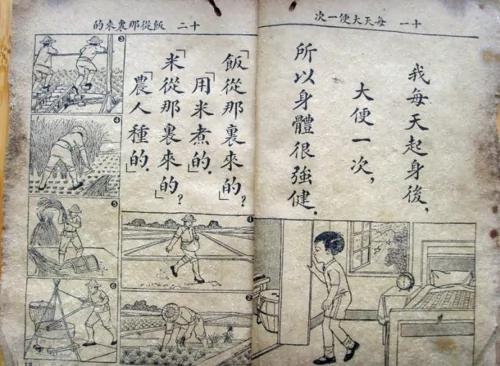 十一 每天大便一次
我每天起身後，
大便一次，
所以身體很強健．
十二 飯從那裏來的
「飯從那裏來的？」
「用米煮的．」
「米從那裏來的？」
「農人種的．」
1
2
3
4
5
6